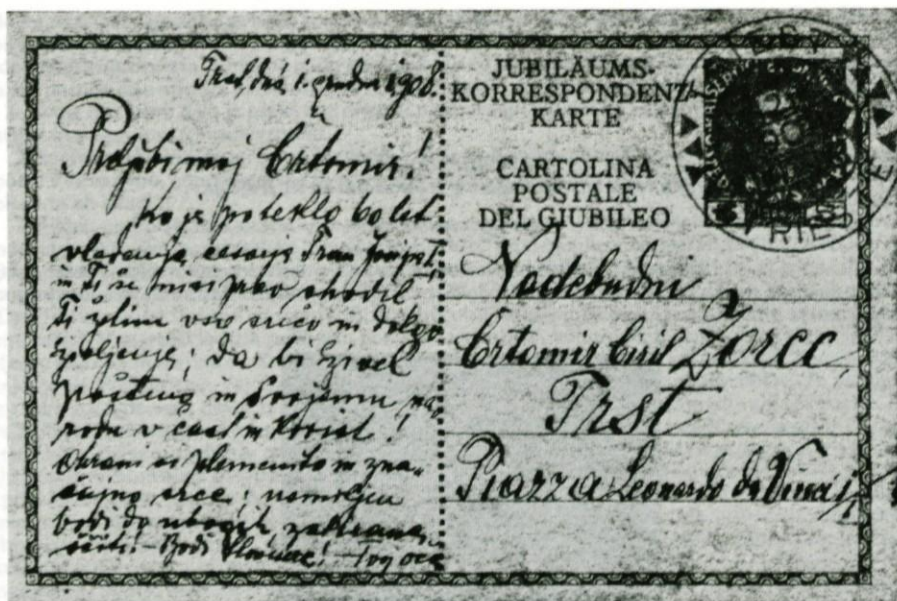 Trst, dné 1. grudna 1908.
Preljubi moj Črtomir!
Ko je poteklo 60 let
vladanja cesarja Fran Josipa I.
in Ti še nisi prav shodil
Ti želim vso srečo in dolgo
življenje; da bi živel
pošteno in svojemu na-
rodu v čast in korist!
Ohrani si plemenito in zna-
čajno srce; usmiljen
bodi do ubogih,
Bodi Slovenec! — Tvoj oče
JUBILÄUMS-
KORRESPONDENZ-
KARTE
CARTOLINA
POSTALE
DEL GIUBILEO
Nadebudni
Črtomir Ciril Zorec
Trst
Piazza Leonardo da Vinci